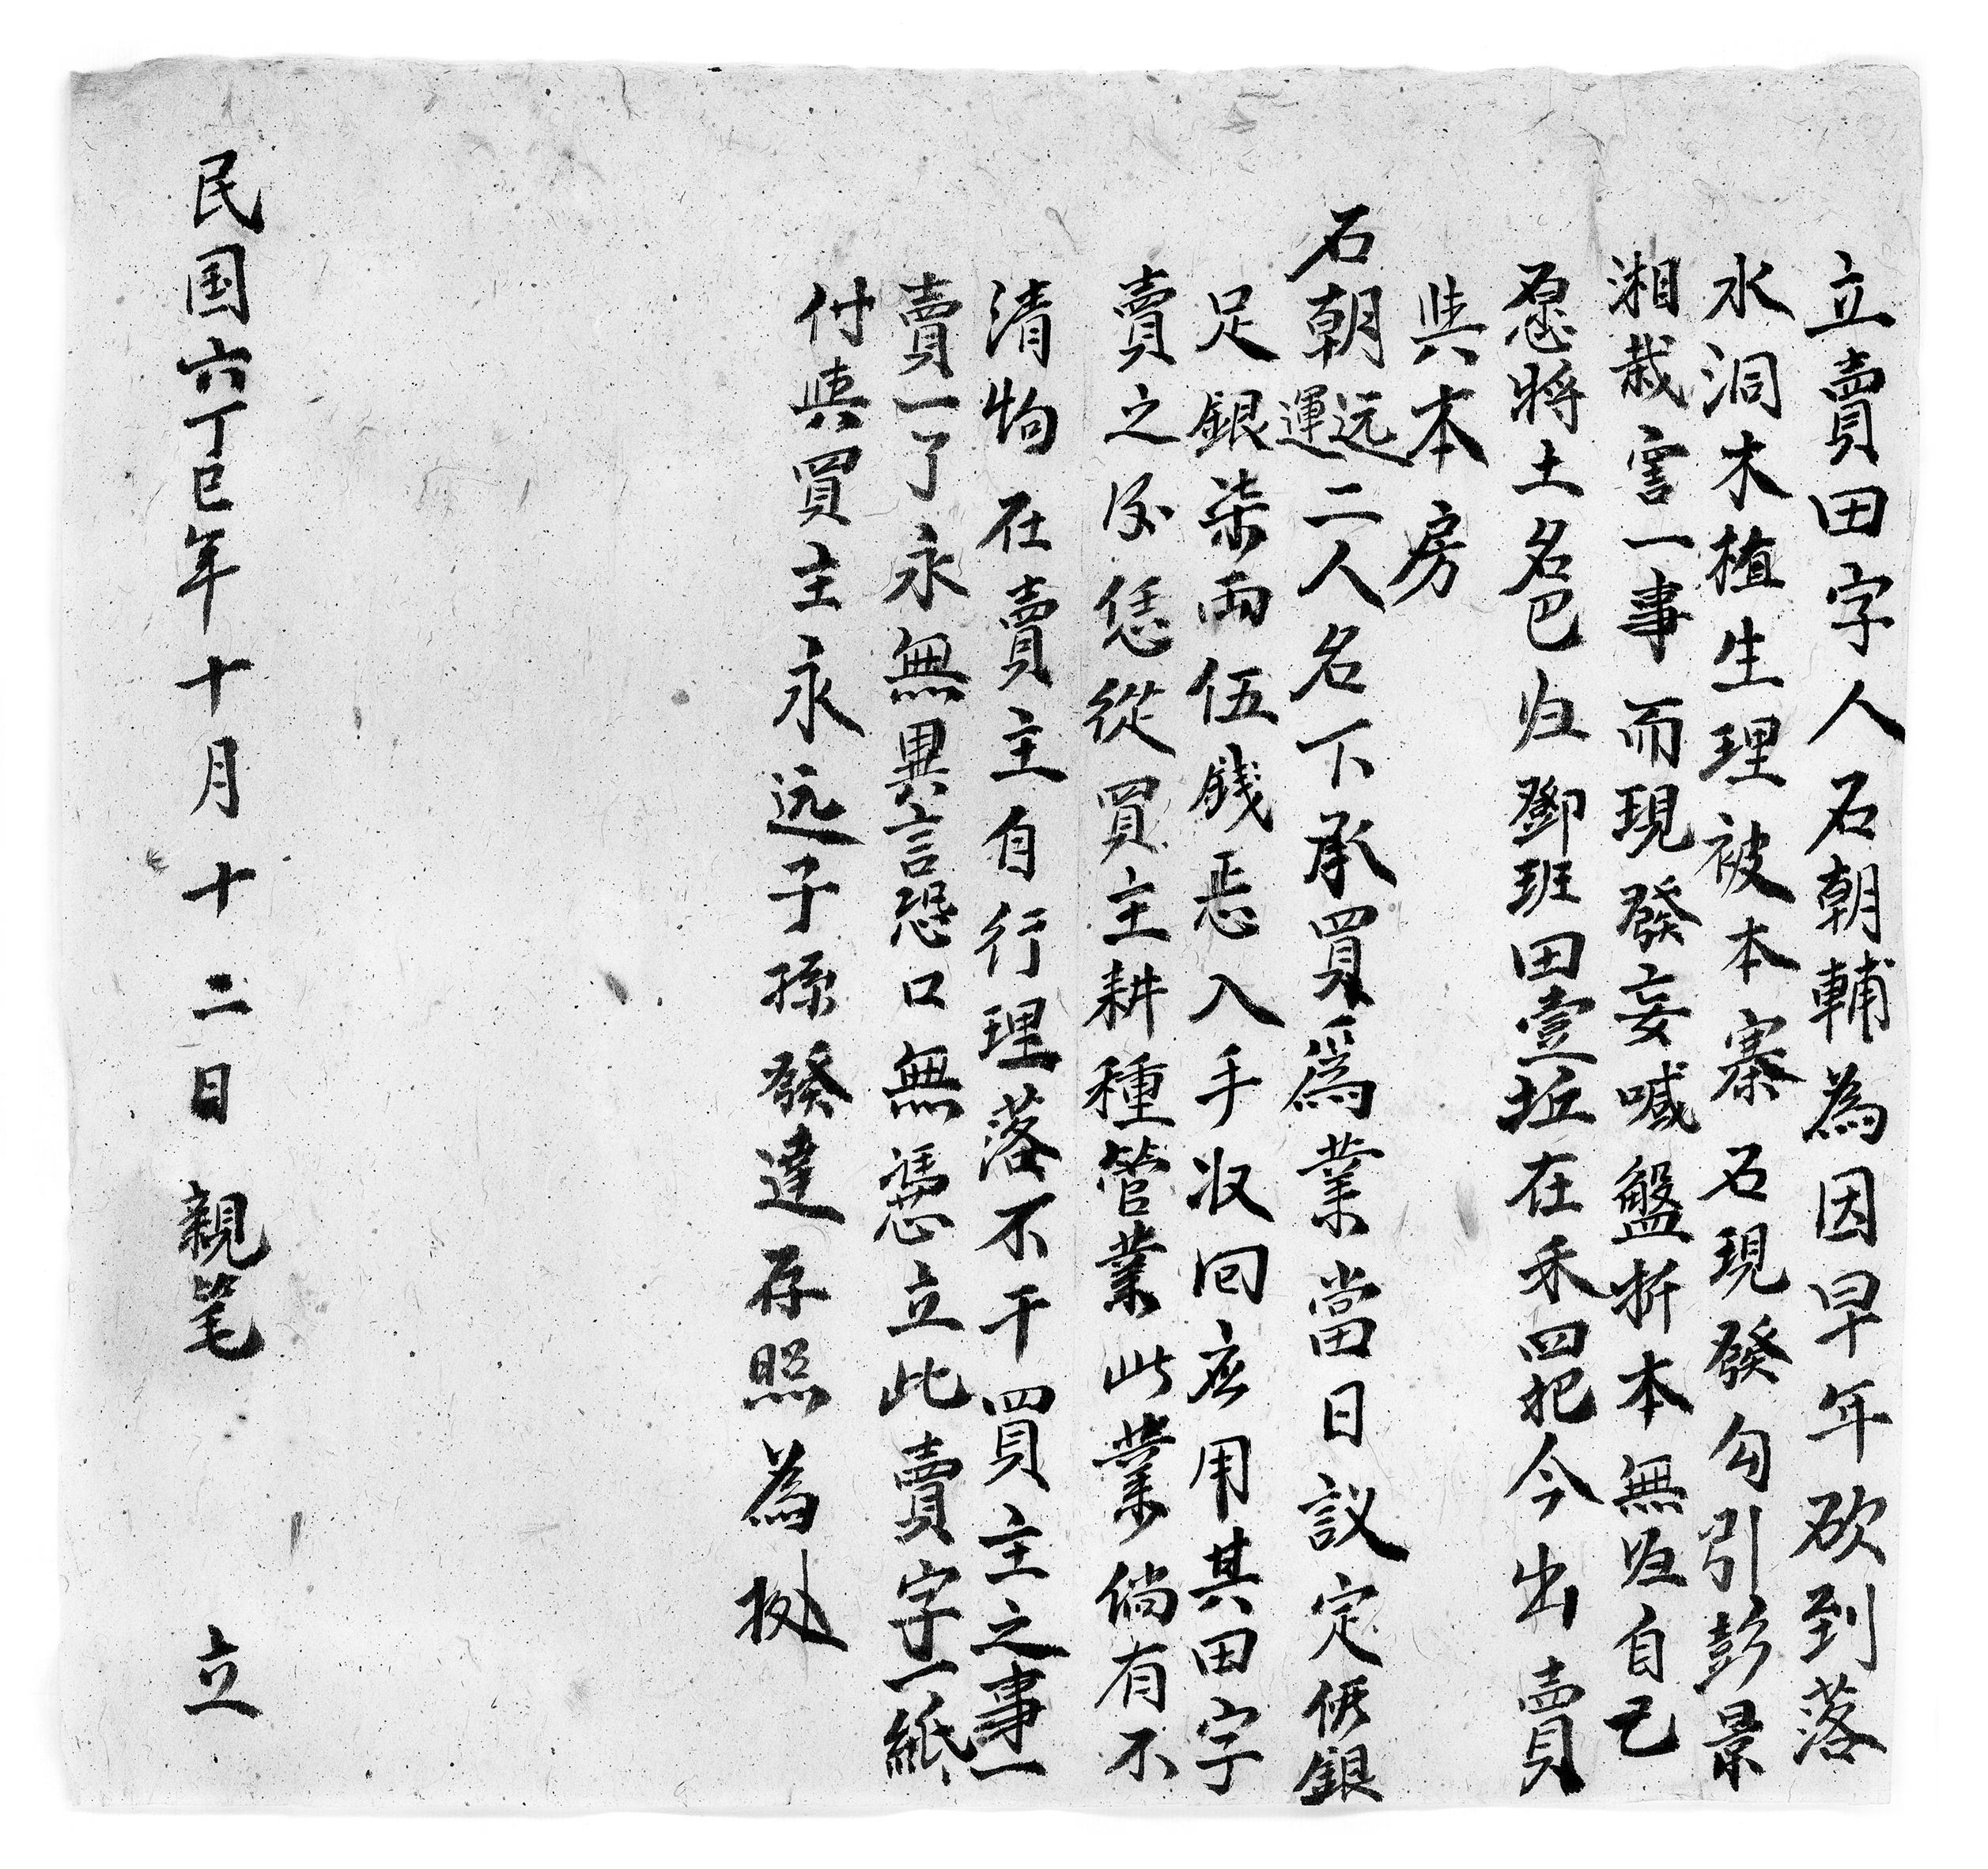 立賣田字人石朝輔為因早年砍到落
水洞木植生理被本寨石現發勾引彭景
湘裁害一事而現發妄喊盤折本無归自己
愿將土名巴归鄧班田壹坵在禾四把今出賣
與本房
石朝運远二人名下承買為業當日議定價銀
足銀柒両伍錢㤪入手收回应用其田字
賣之后恁從買主耕種管業此業倘有不
清物在賣主自行理落不干買主之事一
賣一了永無異言恐口無憑立此賣字一紙
付與買主永远子孫發達存照為㨿
民国六丁巳年十月十二日親笔 立